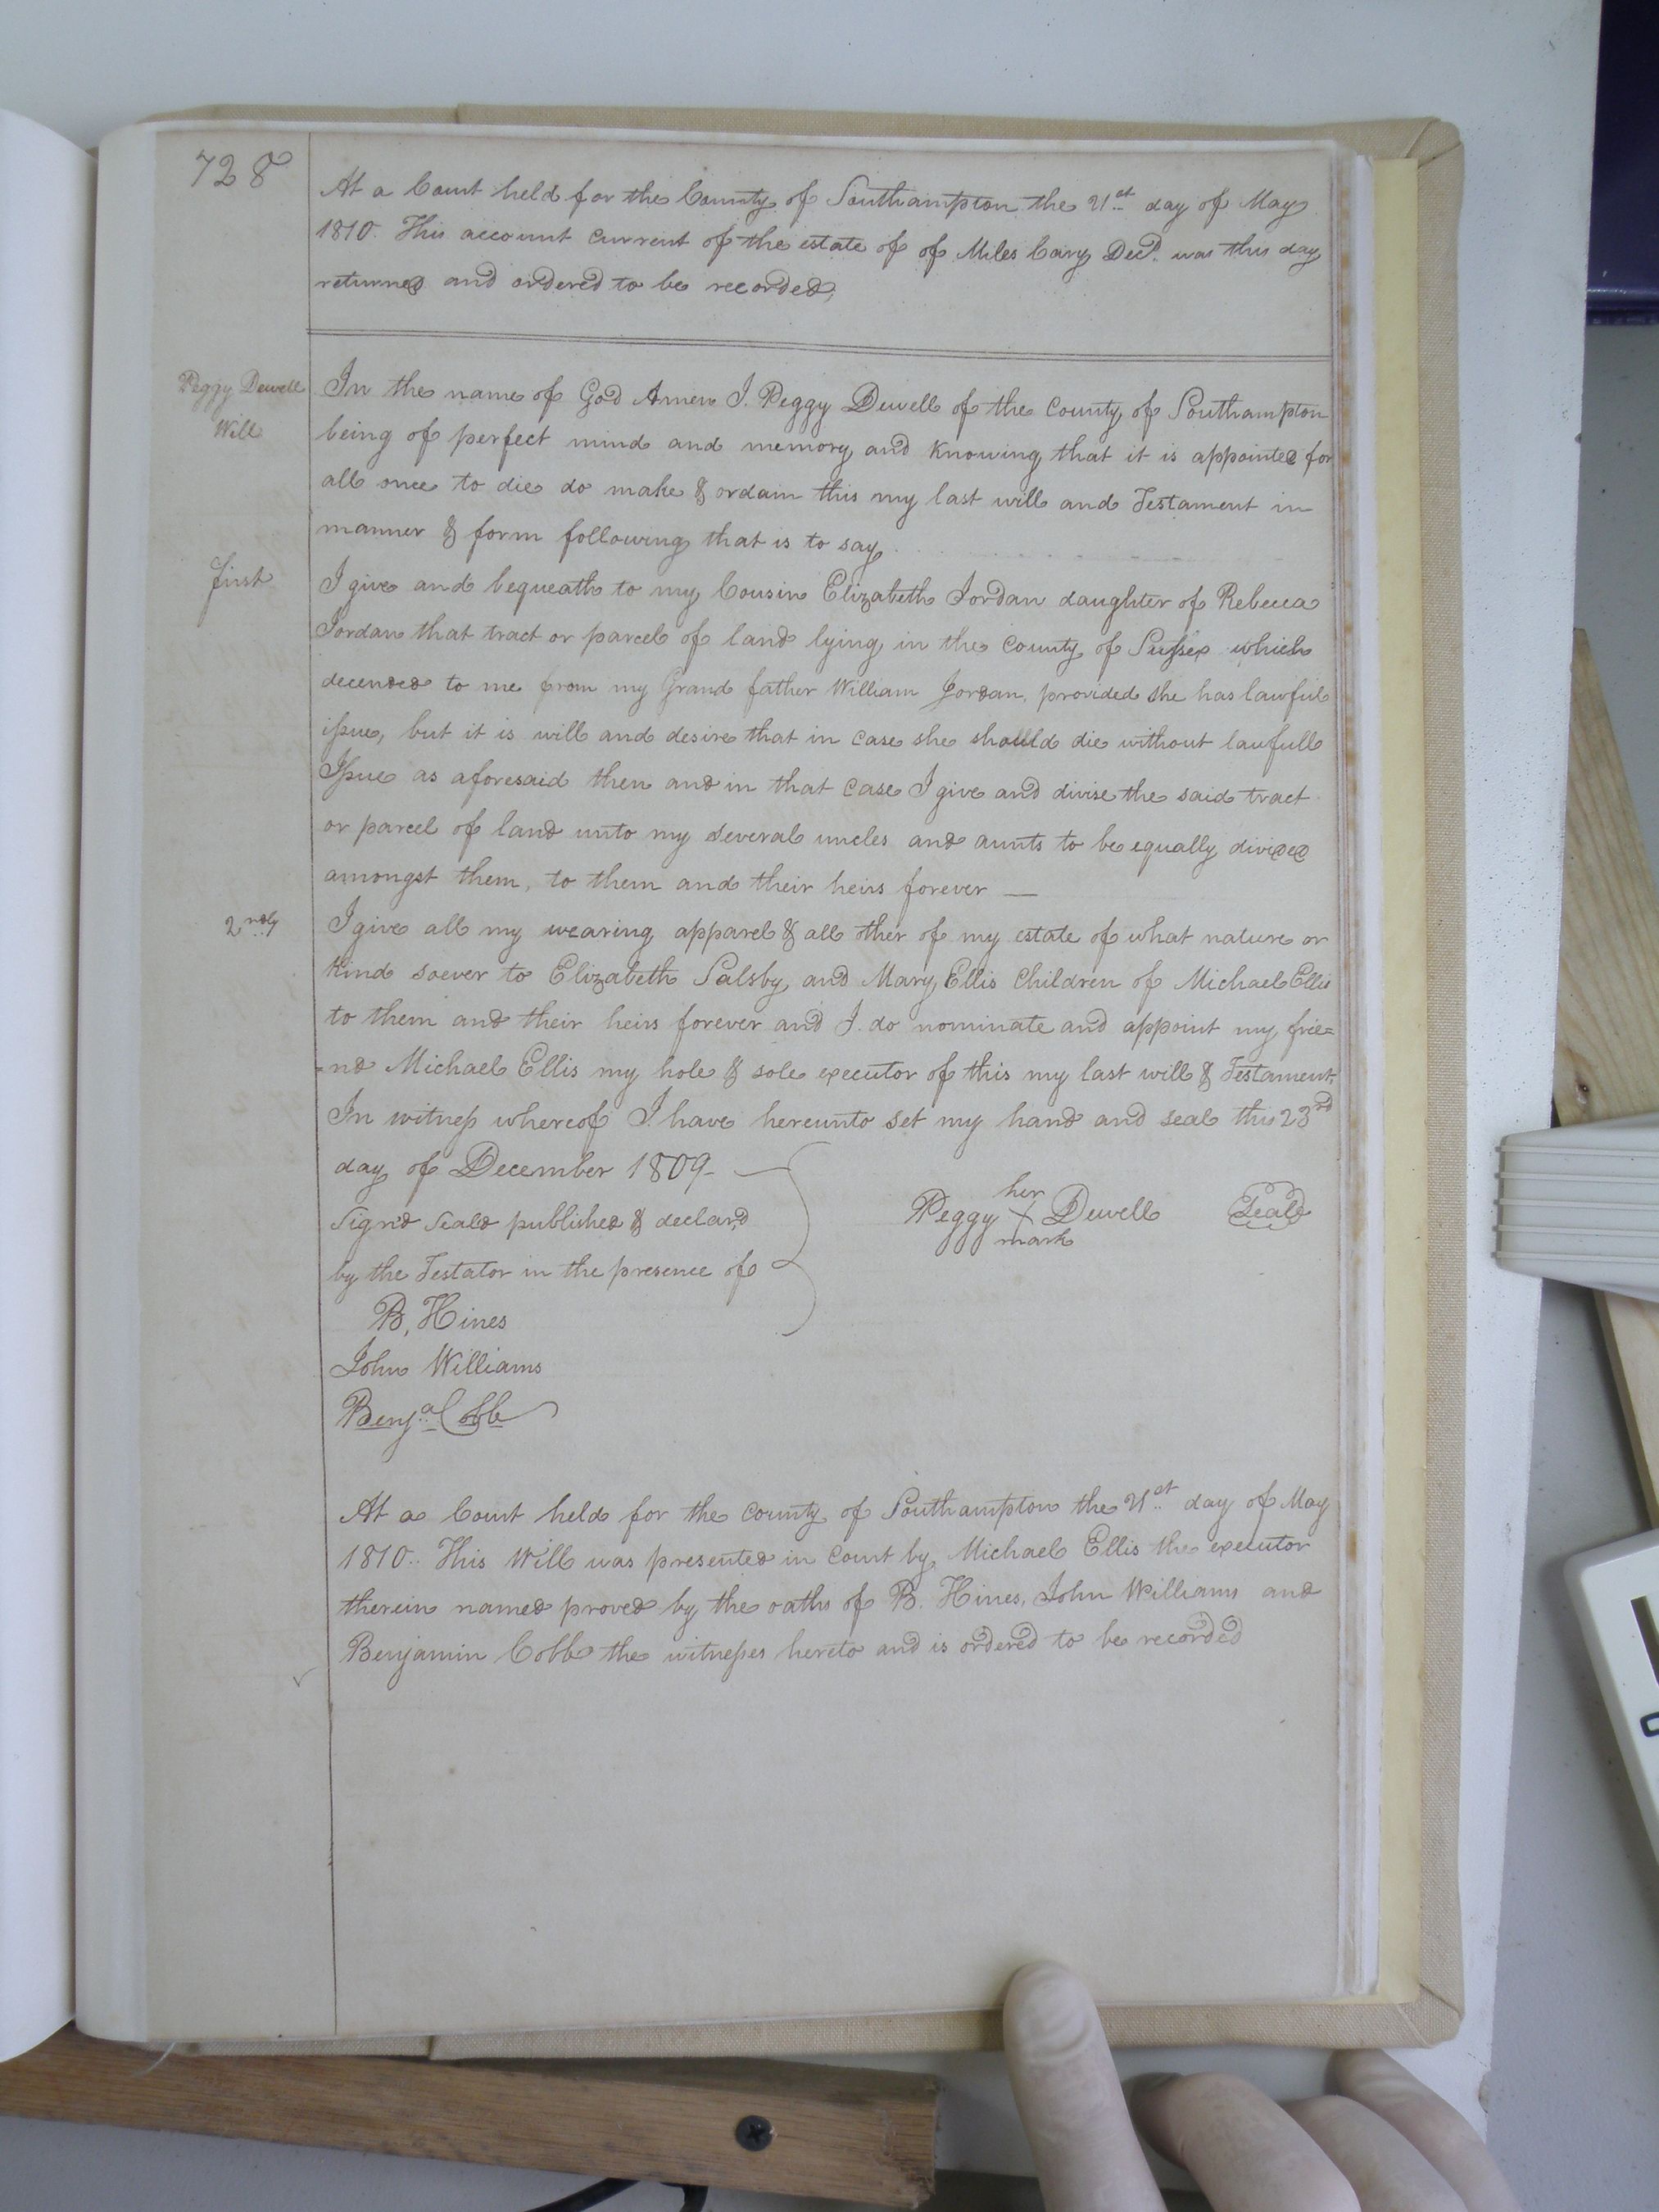 728
At a Court held for the County of Southampton the 21st day of May
1810. This account current of the estate of of Miles Cary Decd. was this day
returned and ordered to be recorded,
Peggy Dewell
Will
In the name of God Amen I. Peggy Dewell of the County of Southampton
being of perfect mind and memory and knowing that it is appointed for
all once to die do make & ordain this my last will and Testament in
manner & form following that is to say
first
I give and bequeath to my Cousin Elizabeth Jordan daughter of Rebecca
Jordan that tract or parcel of land lying in the County of Sussex which
decended to me from my Grand father William Jordan, provided she has lawful
issue, but it is will and desire that in case she should die without lawfull
Issue as aforesaid then and in that case I give and divise the said tract
or parcel of land unto my several uncles and aunts to be equally divided
amongst them, to them and their heirs forever —
2ndly
I give all my wearing apparel & all other of my estate of what nature or
kind soever to Elizabeth Salsby and Mary Ellis Children of Michael Ellis
to them and their heirs forever and I. do nominate and appoint my frie=
=nd Michael Ellis my hole & sole executor of this my last will & Testament.
In witness whereof I have hereunto set my hand and seal this 23rd
day of December 1809—
Sign'd Seald published & declar'd
by the Testator in the presence of
her
Peggy X Dewell Seald
mark
B. Hines
John Williams
Benja Cobb
At a Court held for the County of Southampton the 21st day of May
1810.. This Will was presented in Court by Michael Ellis the executor
therein named proved by the oaths of B. Hines, John Williams and
Benjamin Cobb the witnesses hereto and is ordered to be recorded